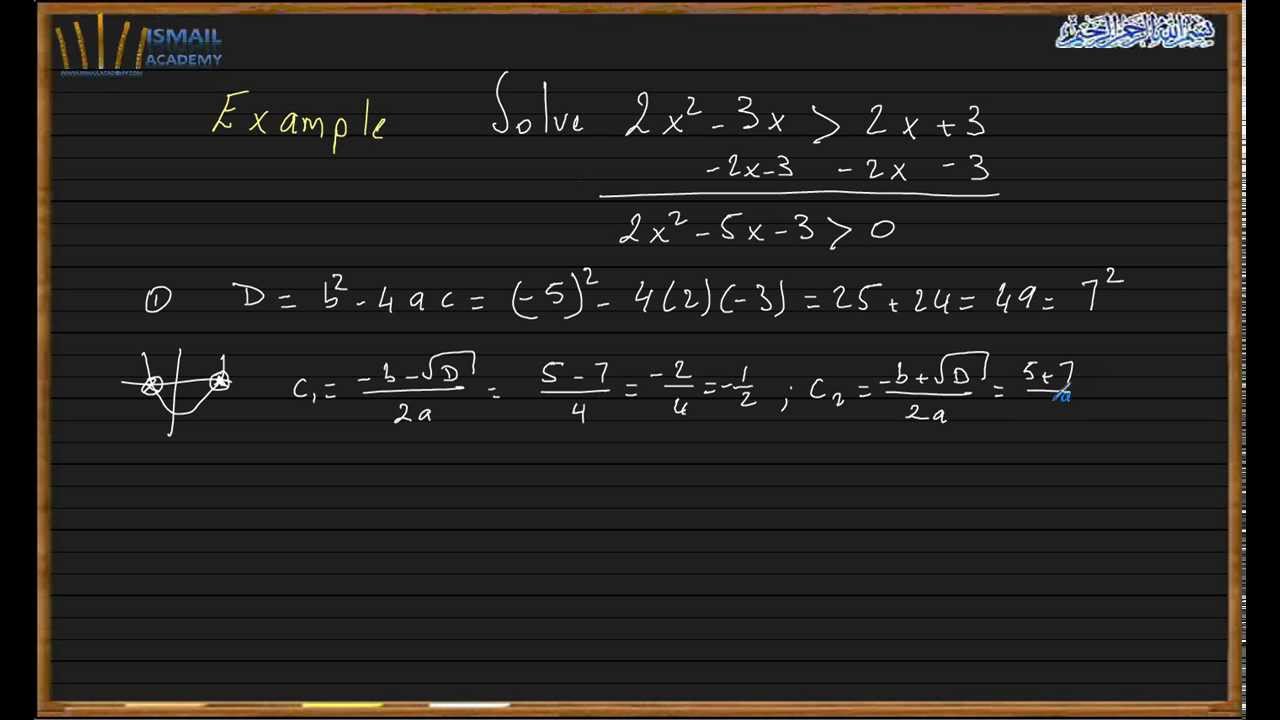 ISMAIL
ACADEMY
WWW.ISMAILACADEMY.COM
بسم الله الرحمن الرحيم
Example Solve 2x² - 3x > 2x + 3
-2x-3 - 2x - 3
2x² - 5x - 3 > 0
① D = b² - 4ac = (-5)² - 4(2)(-3) = 25 + 24 = 49 = 7²
C₁ = (-b-√D)/2a = (5-7)/4 = -2/4 = -1/2 ; C₂ = (-b+√D)/2a = (5+7)/